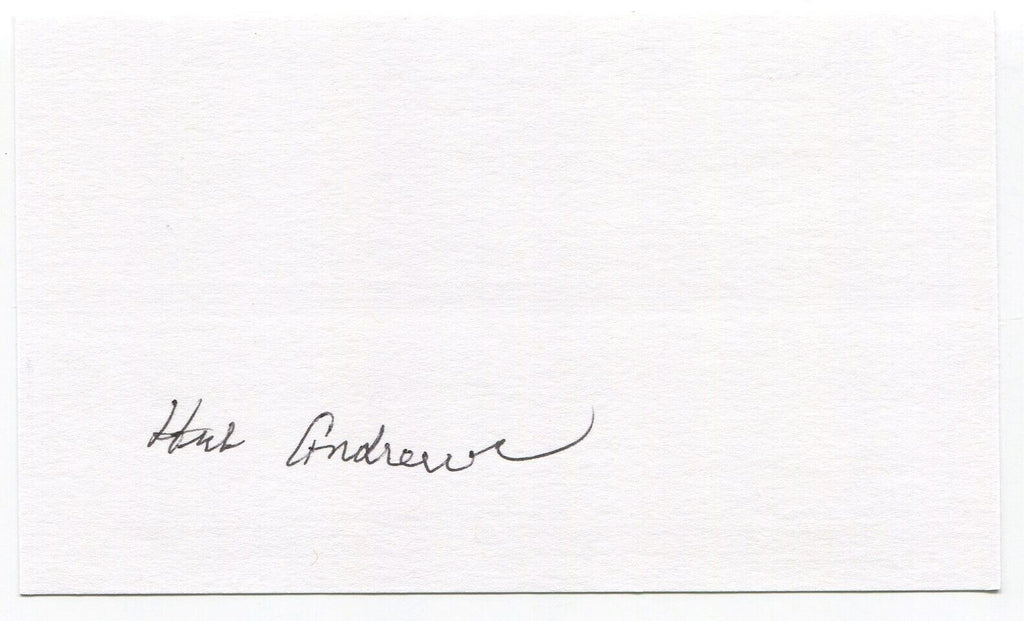 Hub Andrews